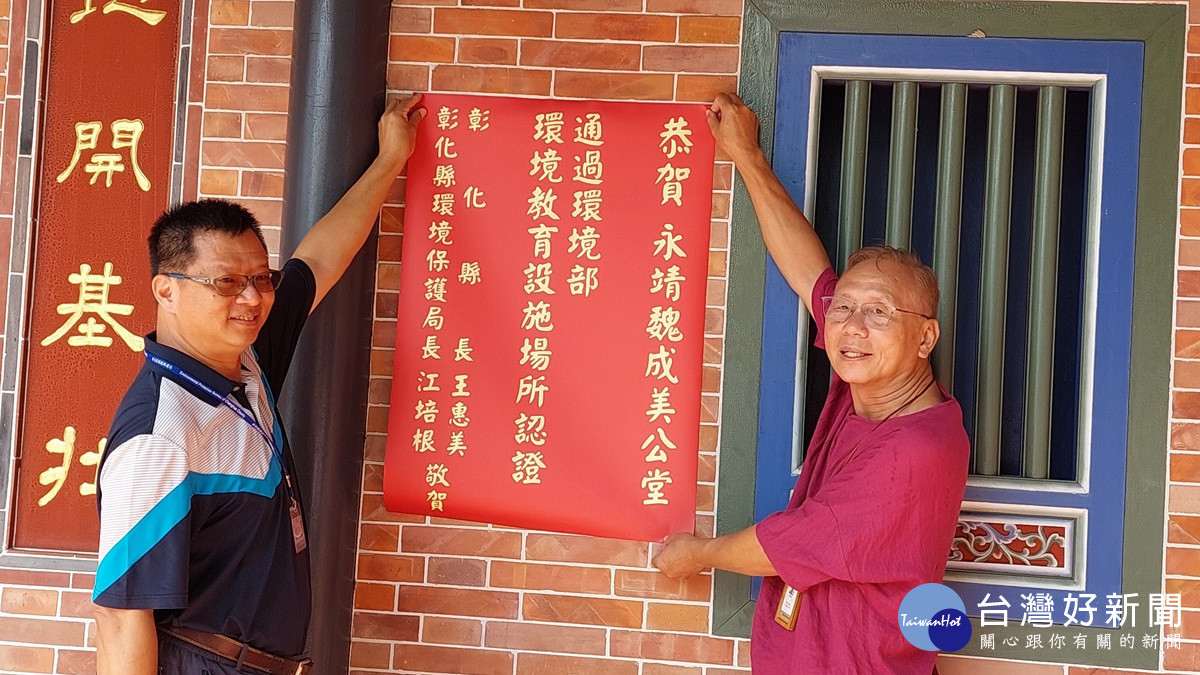 恭賀 永靖魏成美公堂
通過環境部
環境教育設施場所認證
彰化縣 長 王惠美
彰化縣環境保護局長 江培根 敬賀
開基
TaiwanHot
台灣好新聞
關心跟你有關的新聞